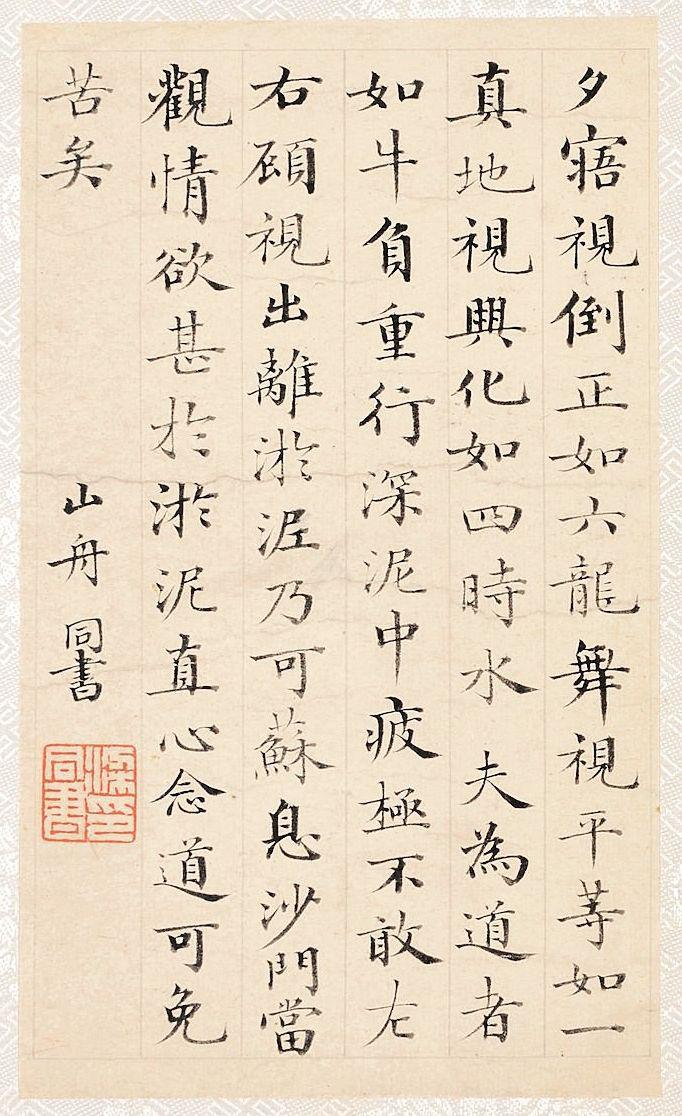 夕寤視倒正如六龍舞視平等如一
真地視興化如四時水 夫為道者
如牛負重行深泥中疲極不敢左
右顧視出離淤泥乃可蘇息沙門當
觀情欲甚於淤泥直心念道可免
苦矣
山舟 同書
梁印同書